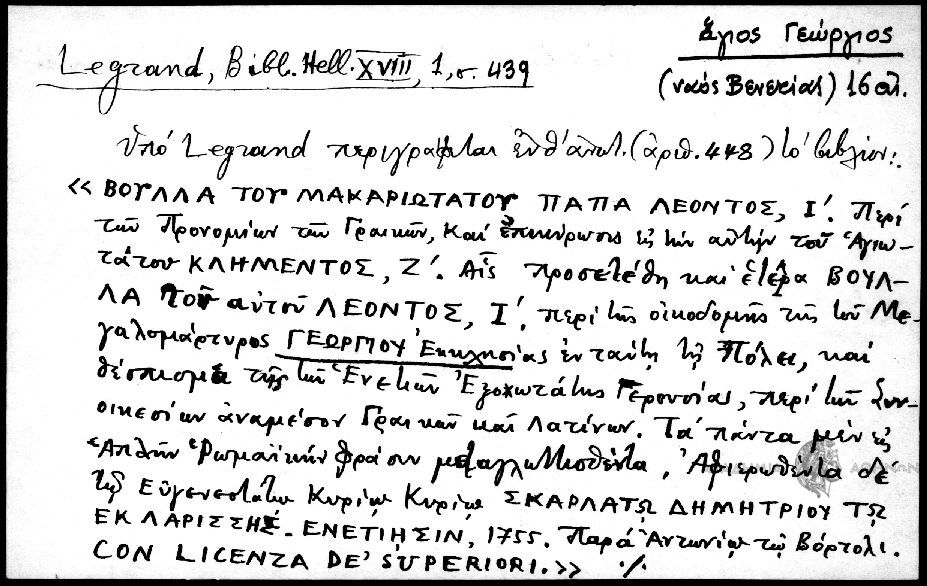 Ἅγιος Γεώργιος
Legrand, Bibl. Hell. XVIII, 1, σ. 439
(ναός Βενετίας) 16 αἰ.
Ὑπό Legrand περιγράφεται ἐνθ' ἀνωτ. (ἀριθ. 448) τό βιβλίον:
«ΒΟΥΛΛΑ ΤΟΥ ΜΑΚΑΡΙΩΤΑΤΟΥ ΠΑΠΑ ΛΕΟΝΤΟΣ, Ι΄. Περί
τῶν Προνομίων τῶν Γραικῶν, Καί ἐπικύρωσις εἰς τήν αὐτήν τοῦ Ἁγιω-
τάτου ΚΛΗΜΕΝΤΟΣ, Ζ΄. Αἷς προσετέθη καί ἑτέρα ΒΟΥΛ-
ΛΑ τοῦ αὐτοῦ ΛΕΟΝΤΟΣ, Ι΄. περί τῆς οἰκοδομῆς τῆς τοῦ Με-
γαλομάρτυρος ΓΕΩΡΓΙΟΥ Ἐκκλησίας ἐν ταύτῃ τῇ Πόλει, καί
θέσπισμα τῆς τῶν Ἑνετῶν Ἐξοχωτάτης Γερουσίας, περί τῶν Συν-
οικεσίων ἀναμέσον Γραικῶν καί Λατίνων. Τά πάντα μέν εἰς
Ἁπλῆν Ῥωμαϊκήν φράσιν μεταγλωττισθέντα, Ἀφιερωθέντα δέ
τῷ Εὐγενεστάτῳ Κυρίῳ Κυρίῳ ΣΚΑΡΛΑΤῼ ΔΗΜΗΤΡΙΟΥ Τῼ
ΕΚ ΛΑΡΙΣΣΗΣ. ΕΝΕΤΙΗΣΙΝ, 1755. Παρά Ἀντωνίῳ τῷ Βόρτολι.
CON LICENZA DE' SUPERIORI.» ·/.